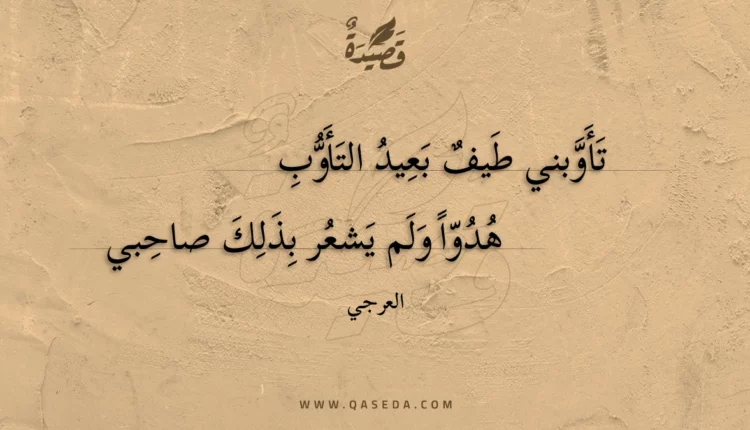 قَصِيْدَةٌ
تَأَوَّبني طَيفٌ بَعِيدُ التَأَوُّبِ
هُدُوّاً وَلَم يَشعُر بِذَلِكَ صاحِبي
العرجي
WWW.QASEDA.COM